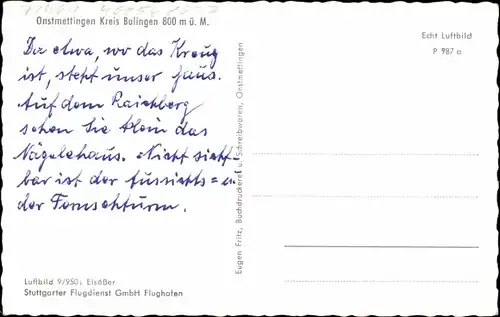 Onstmettingen Kreis Balingen 800 m ü. M.
Da etwa, wo das Kreuz
ist, steht unser Haus.
Auf dem Raichberg
sehen Sie klein das
Nägelehaus. Nicht sicht-
bar ist der Aussichts= u.
der Fernsehturm.
Luftbild 9/950; Elsäßer
Stuttgarter Flugdienst GmbH Flughafen
Eugen Fritz, Buchdruckerei u. Schreibwaren, Onstmettingen
Echt Luftbild
P 987 a